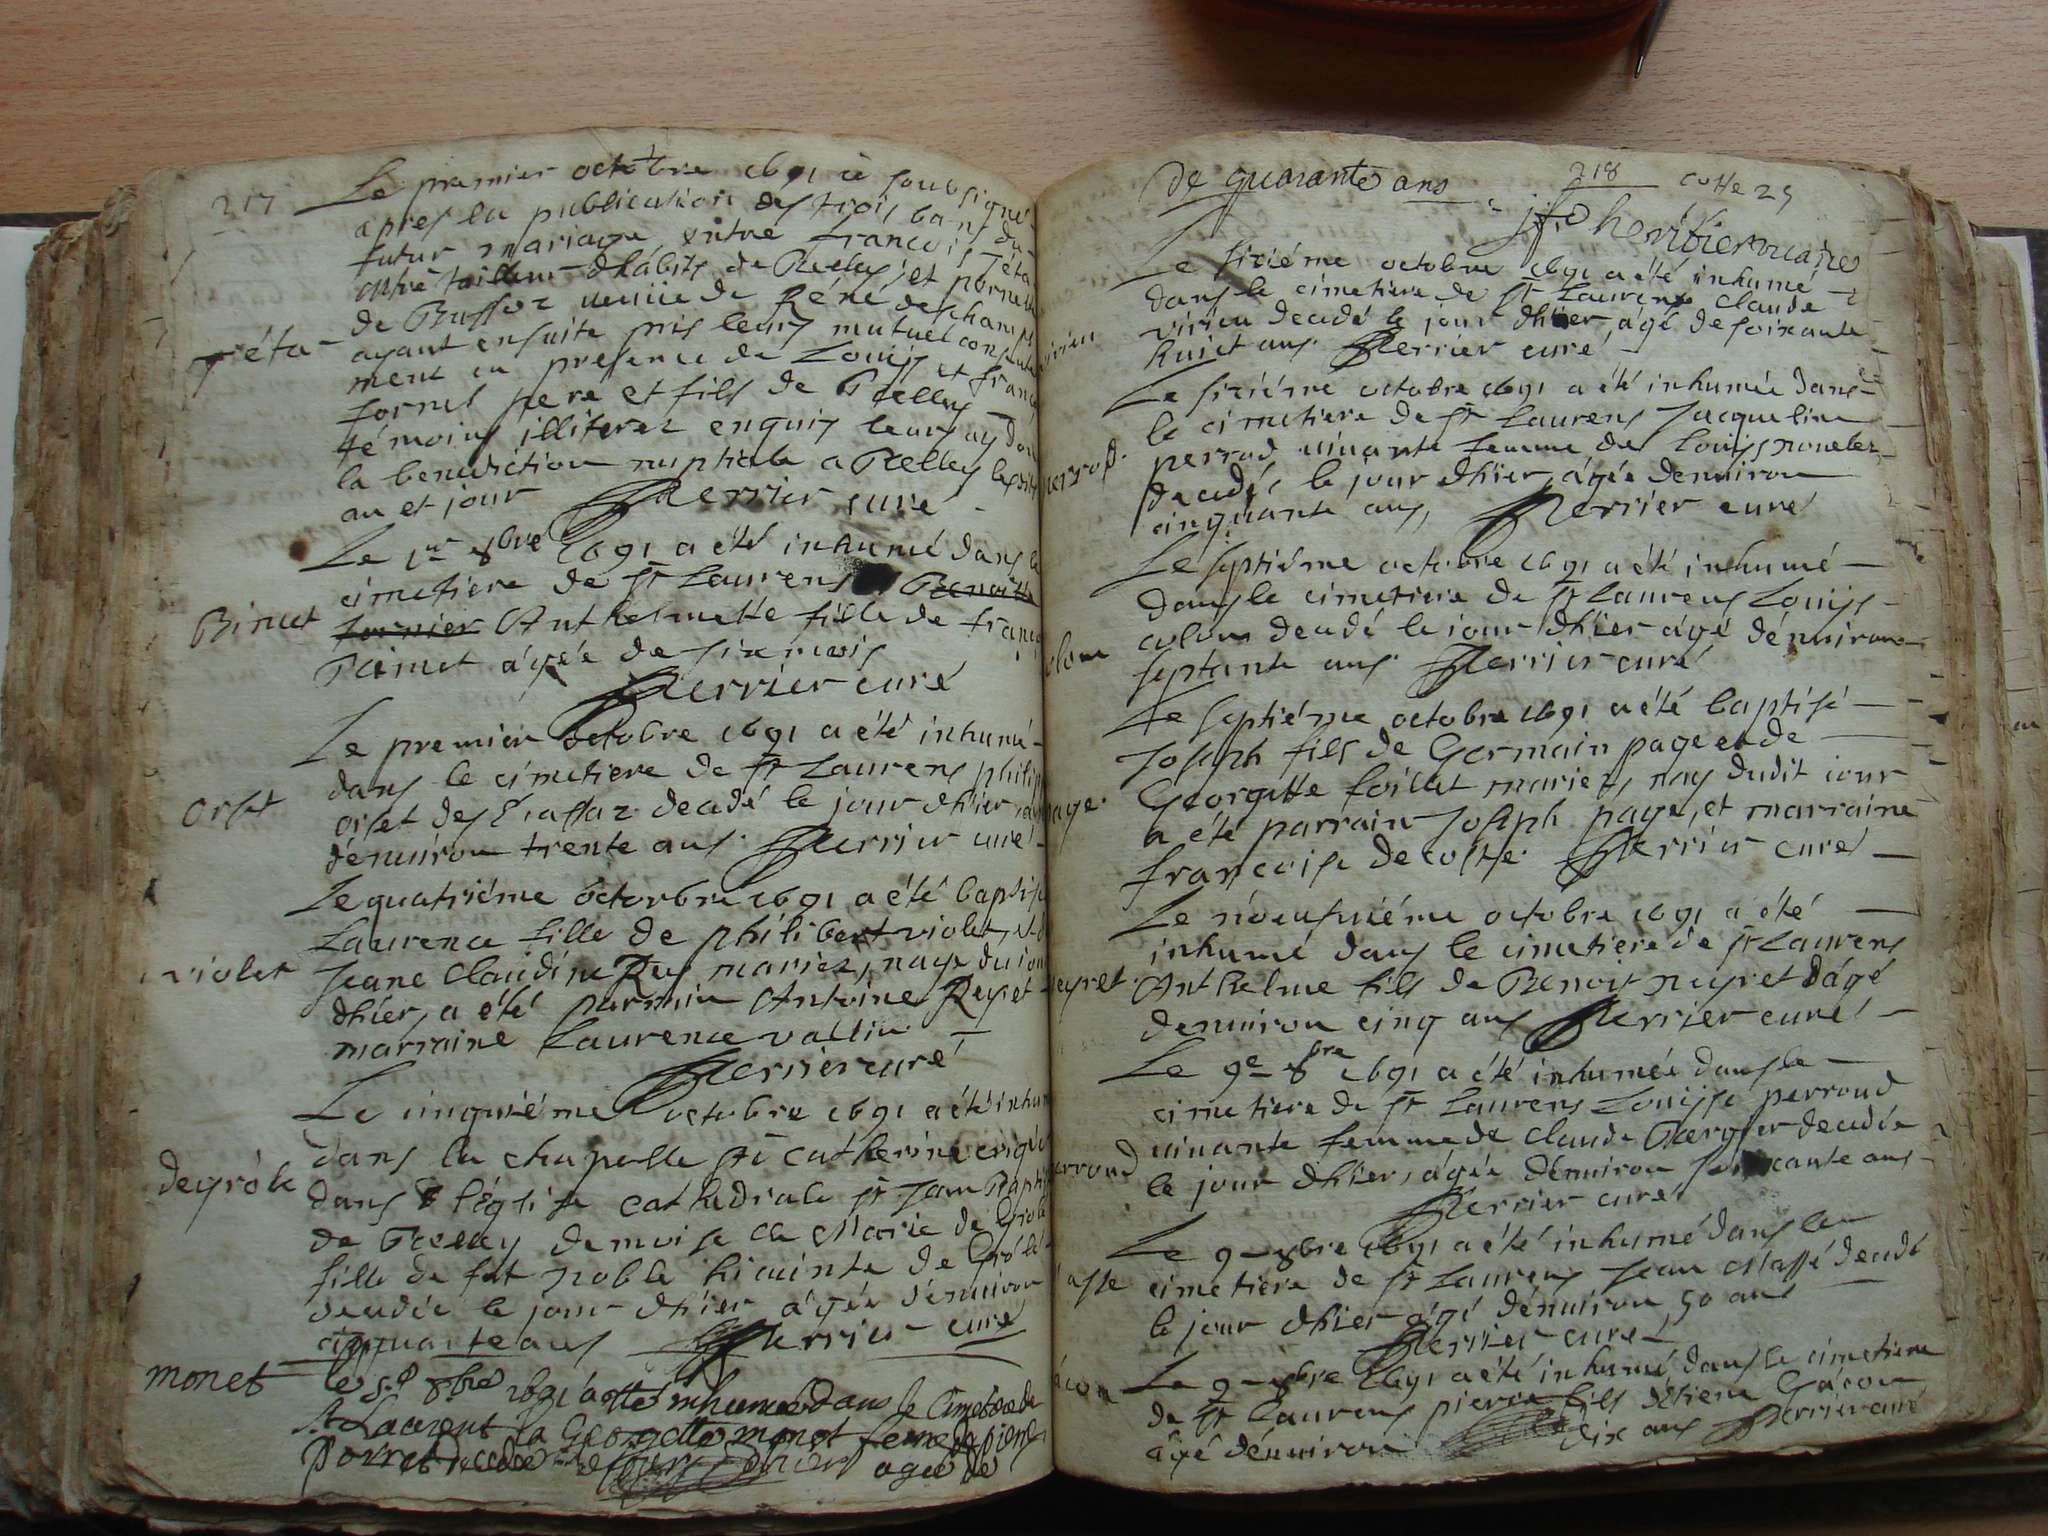 217
Le premier octobre 1691 ie soubsigné
apres la publication des trois bans du
futur mariage entre francois géta
tailleur dhabits de Belley et pernette
de Bussoz veuve de Réné deschamps
ayant ensuite pris leurs mutuel consente
géta
ment en presence de Louiss et franc
fornel pere et fils de Belley
témoins illiterez enquis leurs ay don
la benediction nuptiale a Belley lesdits
an et jour Perrier curé
Le 1er 8bre 1691 a été inhumé dans le
cimetiere de St Laurens Benoitte
Binet
fornier Anthelmette fille de franç
Binet agée de six mois
Perrier curé
Le premier octobre 1691 a été inhumé
dans le cimetiere de St Laurens philip
orset
orset des decedé le jour dhier
dénuiron trente ans Perrier curé
Le quatriéme octobre 1691 a été baptisé
Laurence fille de philibert violet et d
violet
Jeane Claudine Rey mariez, naye du jour
dhier, a été parrain Antoine Reyet
marraine Laurence vallin
Perrier curé
Le cinquiéme octobre 1691 a été inhum
dans la chapelle Ste catherine erigée
degróle
dans l'église cathedrale St Jean Baptis
de Belley demoiselle Marie de Grole
fille de fut noble hiacinte de Grólé
decedée le jour dhier agée dénuiron
cinquante ans Perrier curé
monet
le 5e 8bre 1691 a etté inhumée dans le Cimetiere de
St Laurent la Georgette monet feme de pierre
Porret decedée hier agée de
218
cotte 25
de quarante ans
heritier vicaire
Le sixiéme octobre 1691 a été inhumé
dans le cimetiere de St Laurens Claude
virieu decedé le jour dhier, agé de soixante
huict ans Perrier curé
Le sixiéme octobre 1691 a été inhumée dans
le cimetiere de St Laurens Jacqueline
perrod
perrod viuante femme de Louiss
decedée le jour dhier, agée denuiron
cinquante ans, Perrier curé
Le septiéme octobre 1691 a été inhumé
dans le cimetiere de St Laurens Louiss
colom decedé le jour dhier agé dénuiron
septante ans Perrier curé
Le septiéme octobre 1691 a été baptisé
Joseph fils de Germain page et de
Georgette foillet mariez, nay dudit jour
page
a été parrain Joseph page, et marraine
francoise decoste Perrier curé
Le nöeufuiéme octobre 1691 a été
inhumé dans le cimetiere de St Laurens
neyret
Anthelme fils de Benoit neyret dágé
denuiron cinq ans Perrier curé
Le 9e 8bre 1691 a été inhumée dans le
cimetiere de St Laurens Louisse perroud
perroud
viuante femme de Claude decedée
le jour dhier, agée dénuiron soixante ans
Perrier curé
Le 9 8bre 1691 a été inhumé dans le
cimetiere de St Laurens Jean Massé decedé
le jour dhier agé dénuiron 50 ans
Perrier curé
Le 9 8bre 1691 a été inhumé dans le cimetiere
de St Laurens pierre fils détiene Gácon
agé dénuiron dix ans Perrier curé